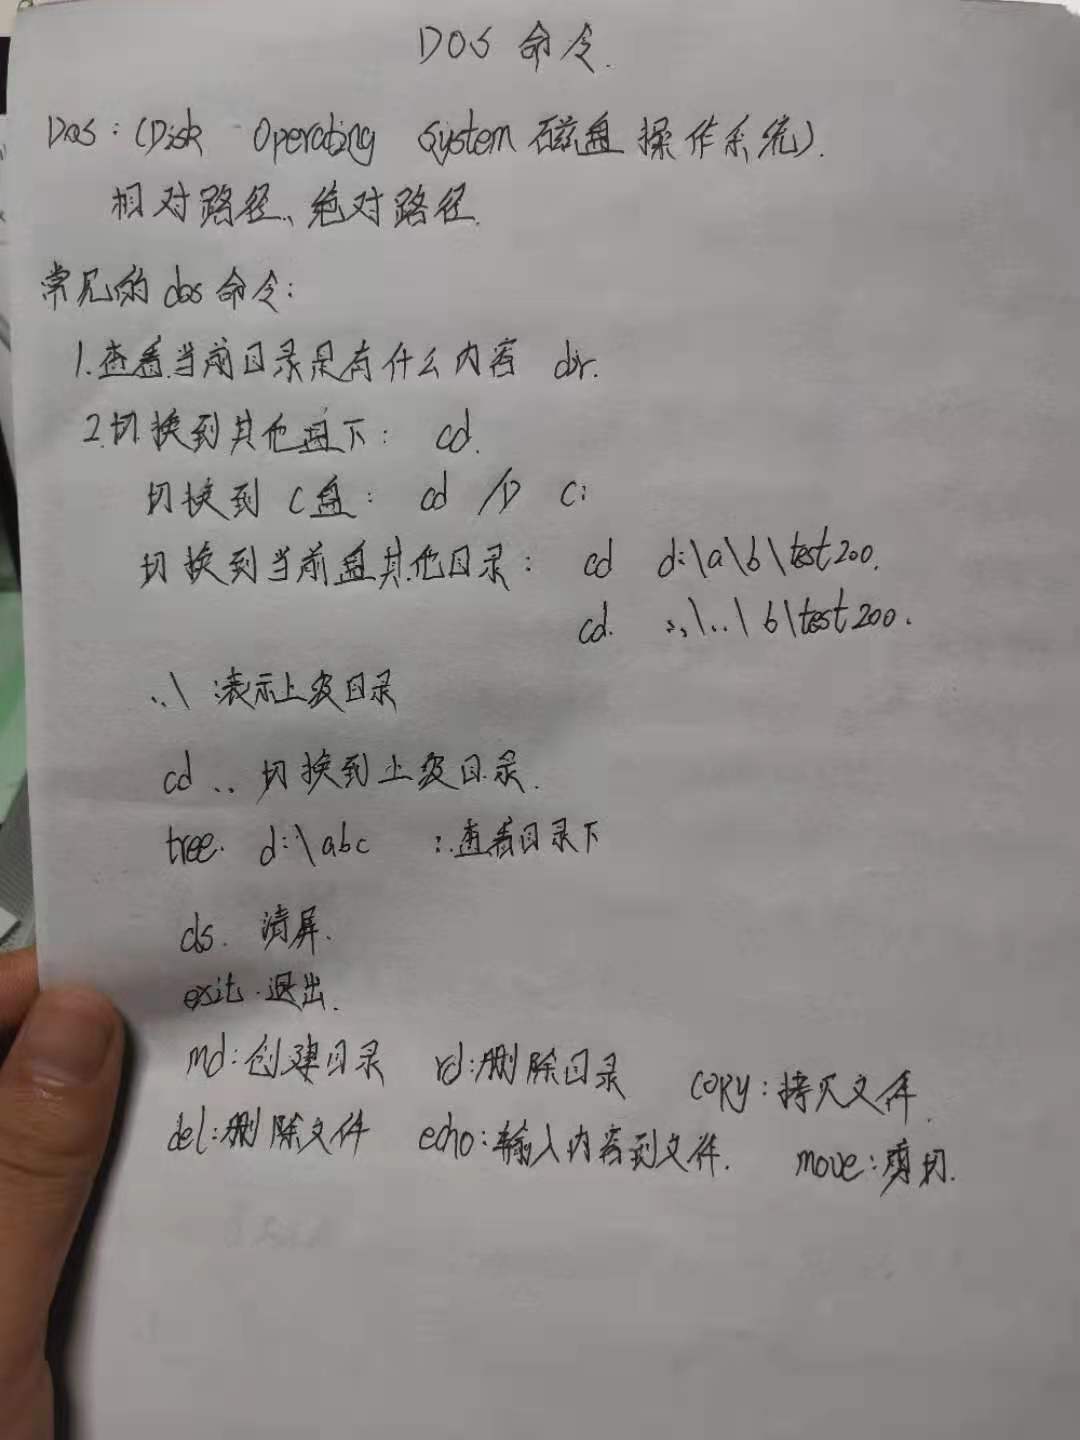 DOS 命令.
Dos:(Disk Operating System 磁盘操作系统).
相对路径、绝对路径.
常见的 dos 命令:
1.查看当前目录是有什么内容 dir.
2.切换到其他盘下: cd.
切换到 C盘: cd /D C:
切换到当前盘其他目录: cd d:\a\b\test200.
cd. ..\..\b\test200.
..\ :表示上级目录
cd .. 切换到上级目录.
tree. d:\abc :查看目录下
cls. 清屏.
exit. 退出.
md:创建目录 rd:删除目录 copy:拷贝文件.
del:删除文件 echo:输入内容到文件. move:剪切.